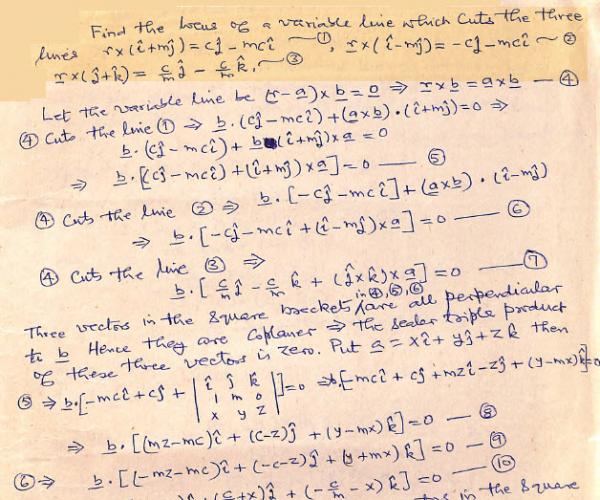 Find the locus of a variable line which cuts the three
lines r×(î+mĵ)=cĵ−mcî ~ ①, r×(î−mĵ)=−cĵ−mcî ~ ②
r×(ĵ+k̂)= c/m ĵ − c/m k̂, ~ ③
Let the variable line be (r−a)×b=0 ⇒ r×b=a×b — ④
④ Cuts the line ① ⇒ b.(cĵ−mcî)+(a×b)•(î+mĵ)=0 ⇒
b.(cĵ−mcî)+ b (î+mĵ)×a = 0
⇒ b.[(cĵ−mcî)+(î+mĵ)×a]=0 — ⑤
④ Cuts the line ② ⇒ b.[−cĵ−mcî]+(a×b)•(î−mĵ)
⇒ b.[−cĵ−mcî+(î−mĵ)×a]=0 — ⑥
④ Cuts the line ③ ⇒
b.[c/m ĵ − c/m k̂ + (ĵ×k̂)×a]=0 — ⑦
Three vectors in the square brackets in ④,⑤,⑥ are all perpendicular
to b Hence they are Coplaner ⇒ the scalar triple product
of these three vectors is zero. Put a = xî+yĵ+zk̂ then
⑤ ⇒ b.[−mcî+cĵ+ |î ĵ k̂ 1 m 0 x y z|]=0 ⇒ b.[−mcî+cĵ+mzî−zĵ+(y−mx)k̂]=0
⇒ b.[(mz−mc)î+(c−z)ĵ+(y−mx)k̂]=0 — ⑧
⑥ ⇒ b.[(−mz−mc)î+(−c−z)ĵ+(y+mx)k̂]=0 — ⑨
(c/m+x)ĵ+(−c/m−x)k̂]=0 — ⑩
in the square